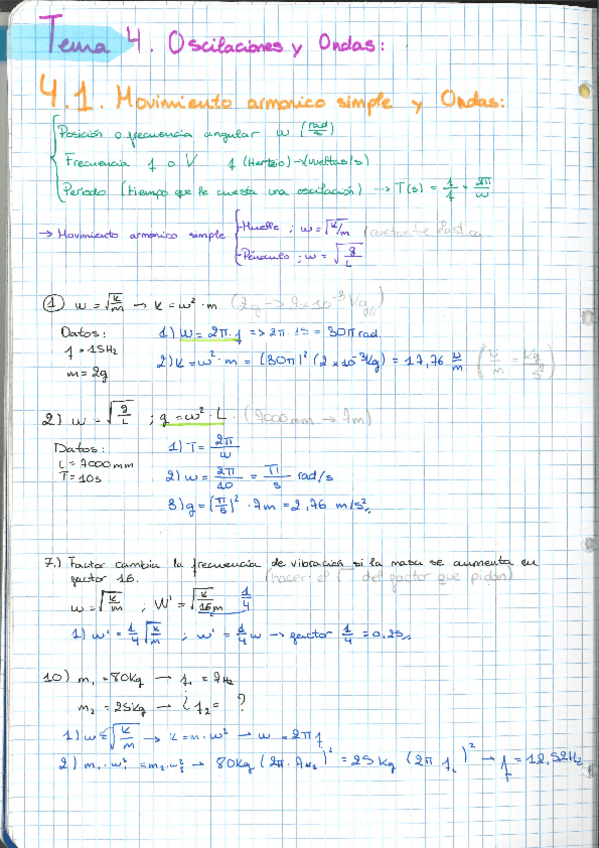 Tema 4. Oscilaciones y Ondas:
4.1. Movimiento armonico simple y Ondas:
Posición o frecuencia angular w (rad/s)
Frecuencia f o V f (Hertzio) → (vueltas/s)
Periodo (tiempo que le cuesta una oscilación) → T(s) = 1/f = 2π/w
→ Movimiento armonico simple
Muelle ; w = √k/m (constante elástica
Péndulo ; w = √g/L
1) w = √k/m → K = w² · m (2g → 2x10⁻³ kg)
Datos:
f = 15Hz
m = 2g
1) w = 2π · f => 2π · 15 = 30π rad.
2) K = w² · m = (30π)² (2 x 10⁻³ kg) = 17,76 N/m (N/m = kg/s²)
2) w = √g/L ; g = w² · L. (7000 mm → 7m)
Datos:
L = 7000 mm
T = 10s
1) T = 2π/w
2) w = 2π/10 = π/5 rad/s
3) g = (π/5)² · 7m = 2,76 m/s²
7.) Factor cambia la frecuencia de vibración si la masa se aumenta en
factor 16. (hacer el √ del factor que pidan)
w = √k/m ; W' = √k/16m 1/4
1) w' = 1/4 √k/m ; w' = 1/4 w → factor 1/4 = 0,25
10) m₁ = 80kg → f₁ = 7Hz
m₂ = 25kg → ¿f₂ = ?
1) w = √k/m → k = m · w² → w = 2πf
2) m₁ · w₁² = m₂ · w₂² → 80kg (2π · 7Hz)² = 25kg (2π f₂)² → f = 12,52Hz